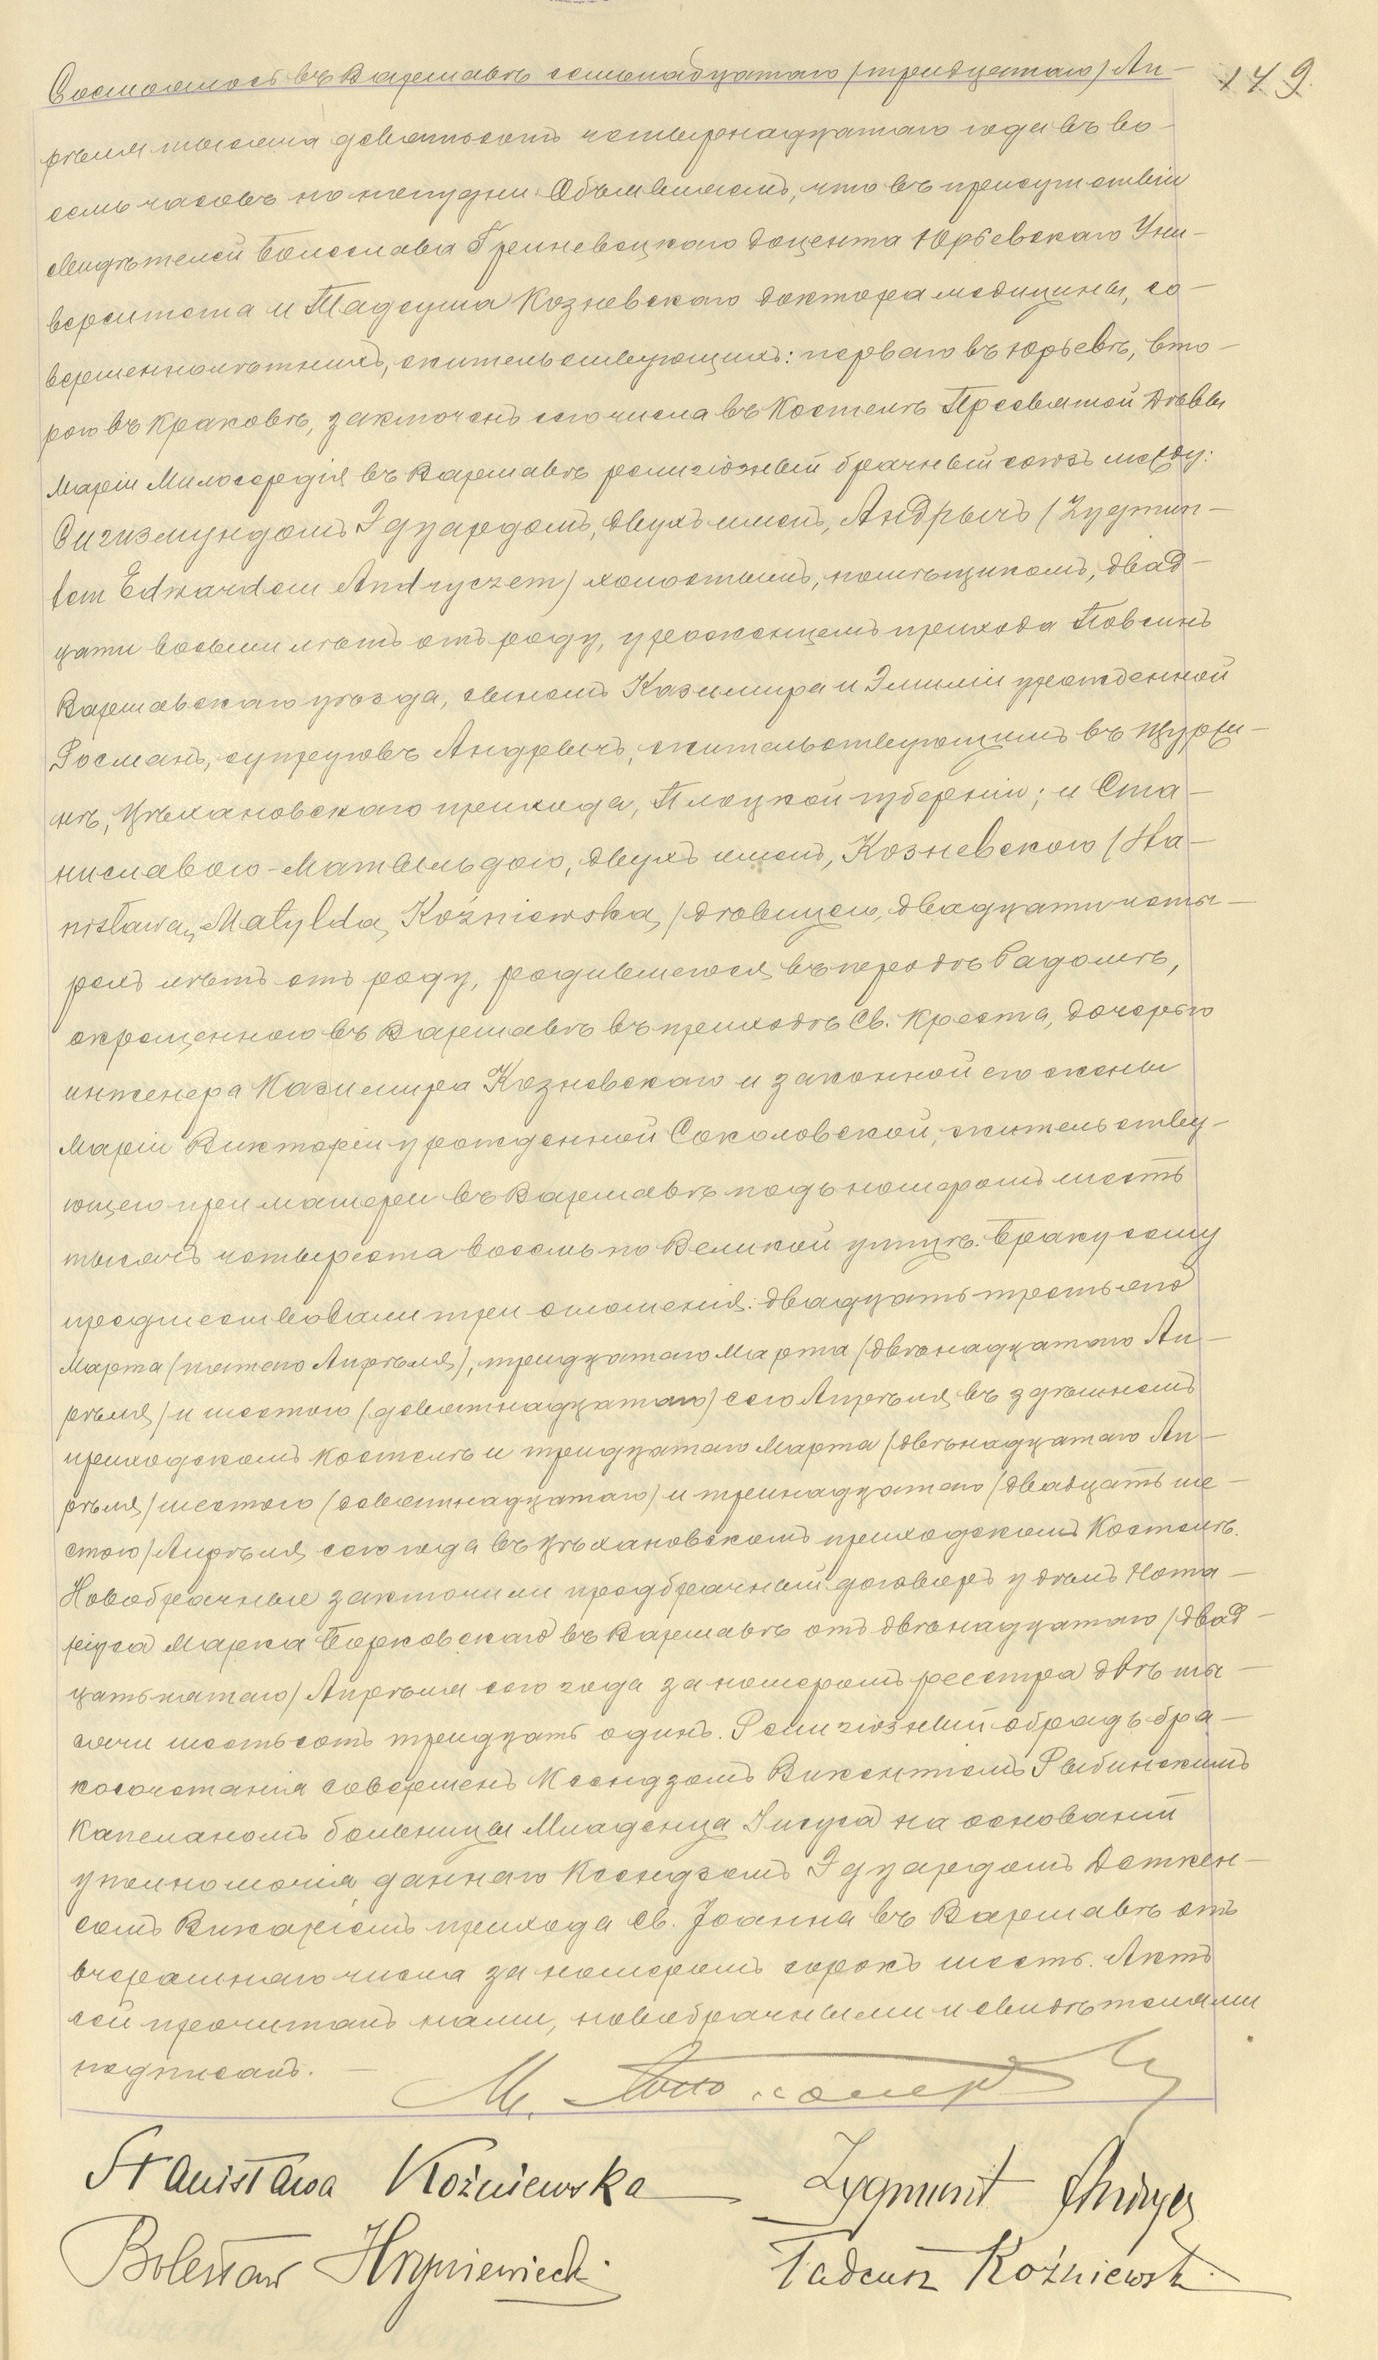 149.
Состоялось въ Варшавѣ семьнадцатаго /тридцатаго/ Ап-
рѣля тысяча девятьсотъ четырнадцатаго года въ во-
семь часовъ по полудни. Объявляемъ, что въ присутствіи
свидѣтелей Болеслава Гриневецкаго доцента Юрьевскаго Уни-
верситета и Тадеуша Козневскаго доктора медицины, со-
вершеннолѣтнихъ, жительствующихъ: перваго въ Юрьевѣ, вто-
рого въ Краковѣ, заключенъ сего числа въ Костелѣ Пресвятой Дѣвы
Маріи Милосердія въ Варшавѣ религіозный брачный союзъ между:
Сигизмундомъ Эдуардомъ, двухъ именъ, Андрычъ /Zygmun-
tem Edwardem Andryczem/ холостымъ, помѣщикомъ, двад-
цати восьми лѣтъ отъ роду, урожденцемъ прихода Повсинъ
Варшавскаго уѣзда, сыномъ Казимира и Эмиліи урожденной
Росманъ, супруговъ Андрычъ, жительствующимъ въ
Цѣхановскаго прихода, Плоцкой губерніи; и Ста-
ниславою-Матыльдою, двухъ именъ, Козневскою /Sta-
nisławą Matyldą Koźniewską/ дѣвицею, двадцати четы-
рехъ лѣтъ отъ роду, родившеюся въ городѣ Радомѣ,
окрещенною въ Варшавѣ въ приходѣ Св. Креста, дочерью
инженера Казимира Козневскаго и законной его жены
Маріи Викторіи урожденной Соколовской, жительству-
ющею при матери въ Варшавѣ подъ номеромъ шесть
тысячъ четыреста восемь по Великой улицѣ. Браку сему
предшествовали три оглашенія: двадцать третьяго
Марта /пятаго Апрѣля/, тридцатаго Марта /двѣнадцатаго Ап-
рѣля/ и шестого /девятнадцатаго/ сего Апрѣля въ здѣшнемъ
приходскомъ Костелѣ и тридцатаго Марта /двѣнадцатаго Ап-
рѣля/ шестого /девятнадцатаго/ и тринадцатаго /двадцать ше-
стого/ Апрѣля сего года въ Цѣхановскомъ приходскомъ Костелѣ.
Новобрачные заключили предбрачный договоръ у дѣлъ Нота-
ріуса Марка Борковскаго въ Варшавѣ отъ двѣнадцатаго /двад-
цать пятаго/ Апрѣля сего года за номеромъ реестра двѣ ты-
сячи шестьсотъ тридцать одинъ. Религіозный обрядъ бра-
косочетанія совершенъ Ксендзомъ Викентіемъ Рыбинскимъ
Капеланомъ больницы Младенца Іисуса на основаніи
уполномочія даннаго Ксендзомъ Эдуардомъ Деткен-
сомъ Викаріемъ прихода Св. Іоанна въ Варшавѣ отъ
вчерашняго числа за номеромъ сорокъ шесть. Актъ
сей прочитанъ нами, новобрачными и свидѣтелями
подписанъ. —
Stanisława Koźniewska Zygmunt Andrycz
Bolesław Hryniewiecki. Tadeusz Koźniewski